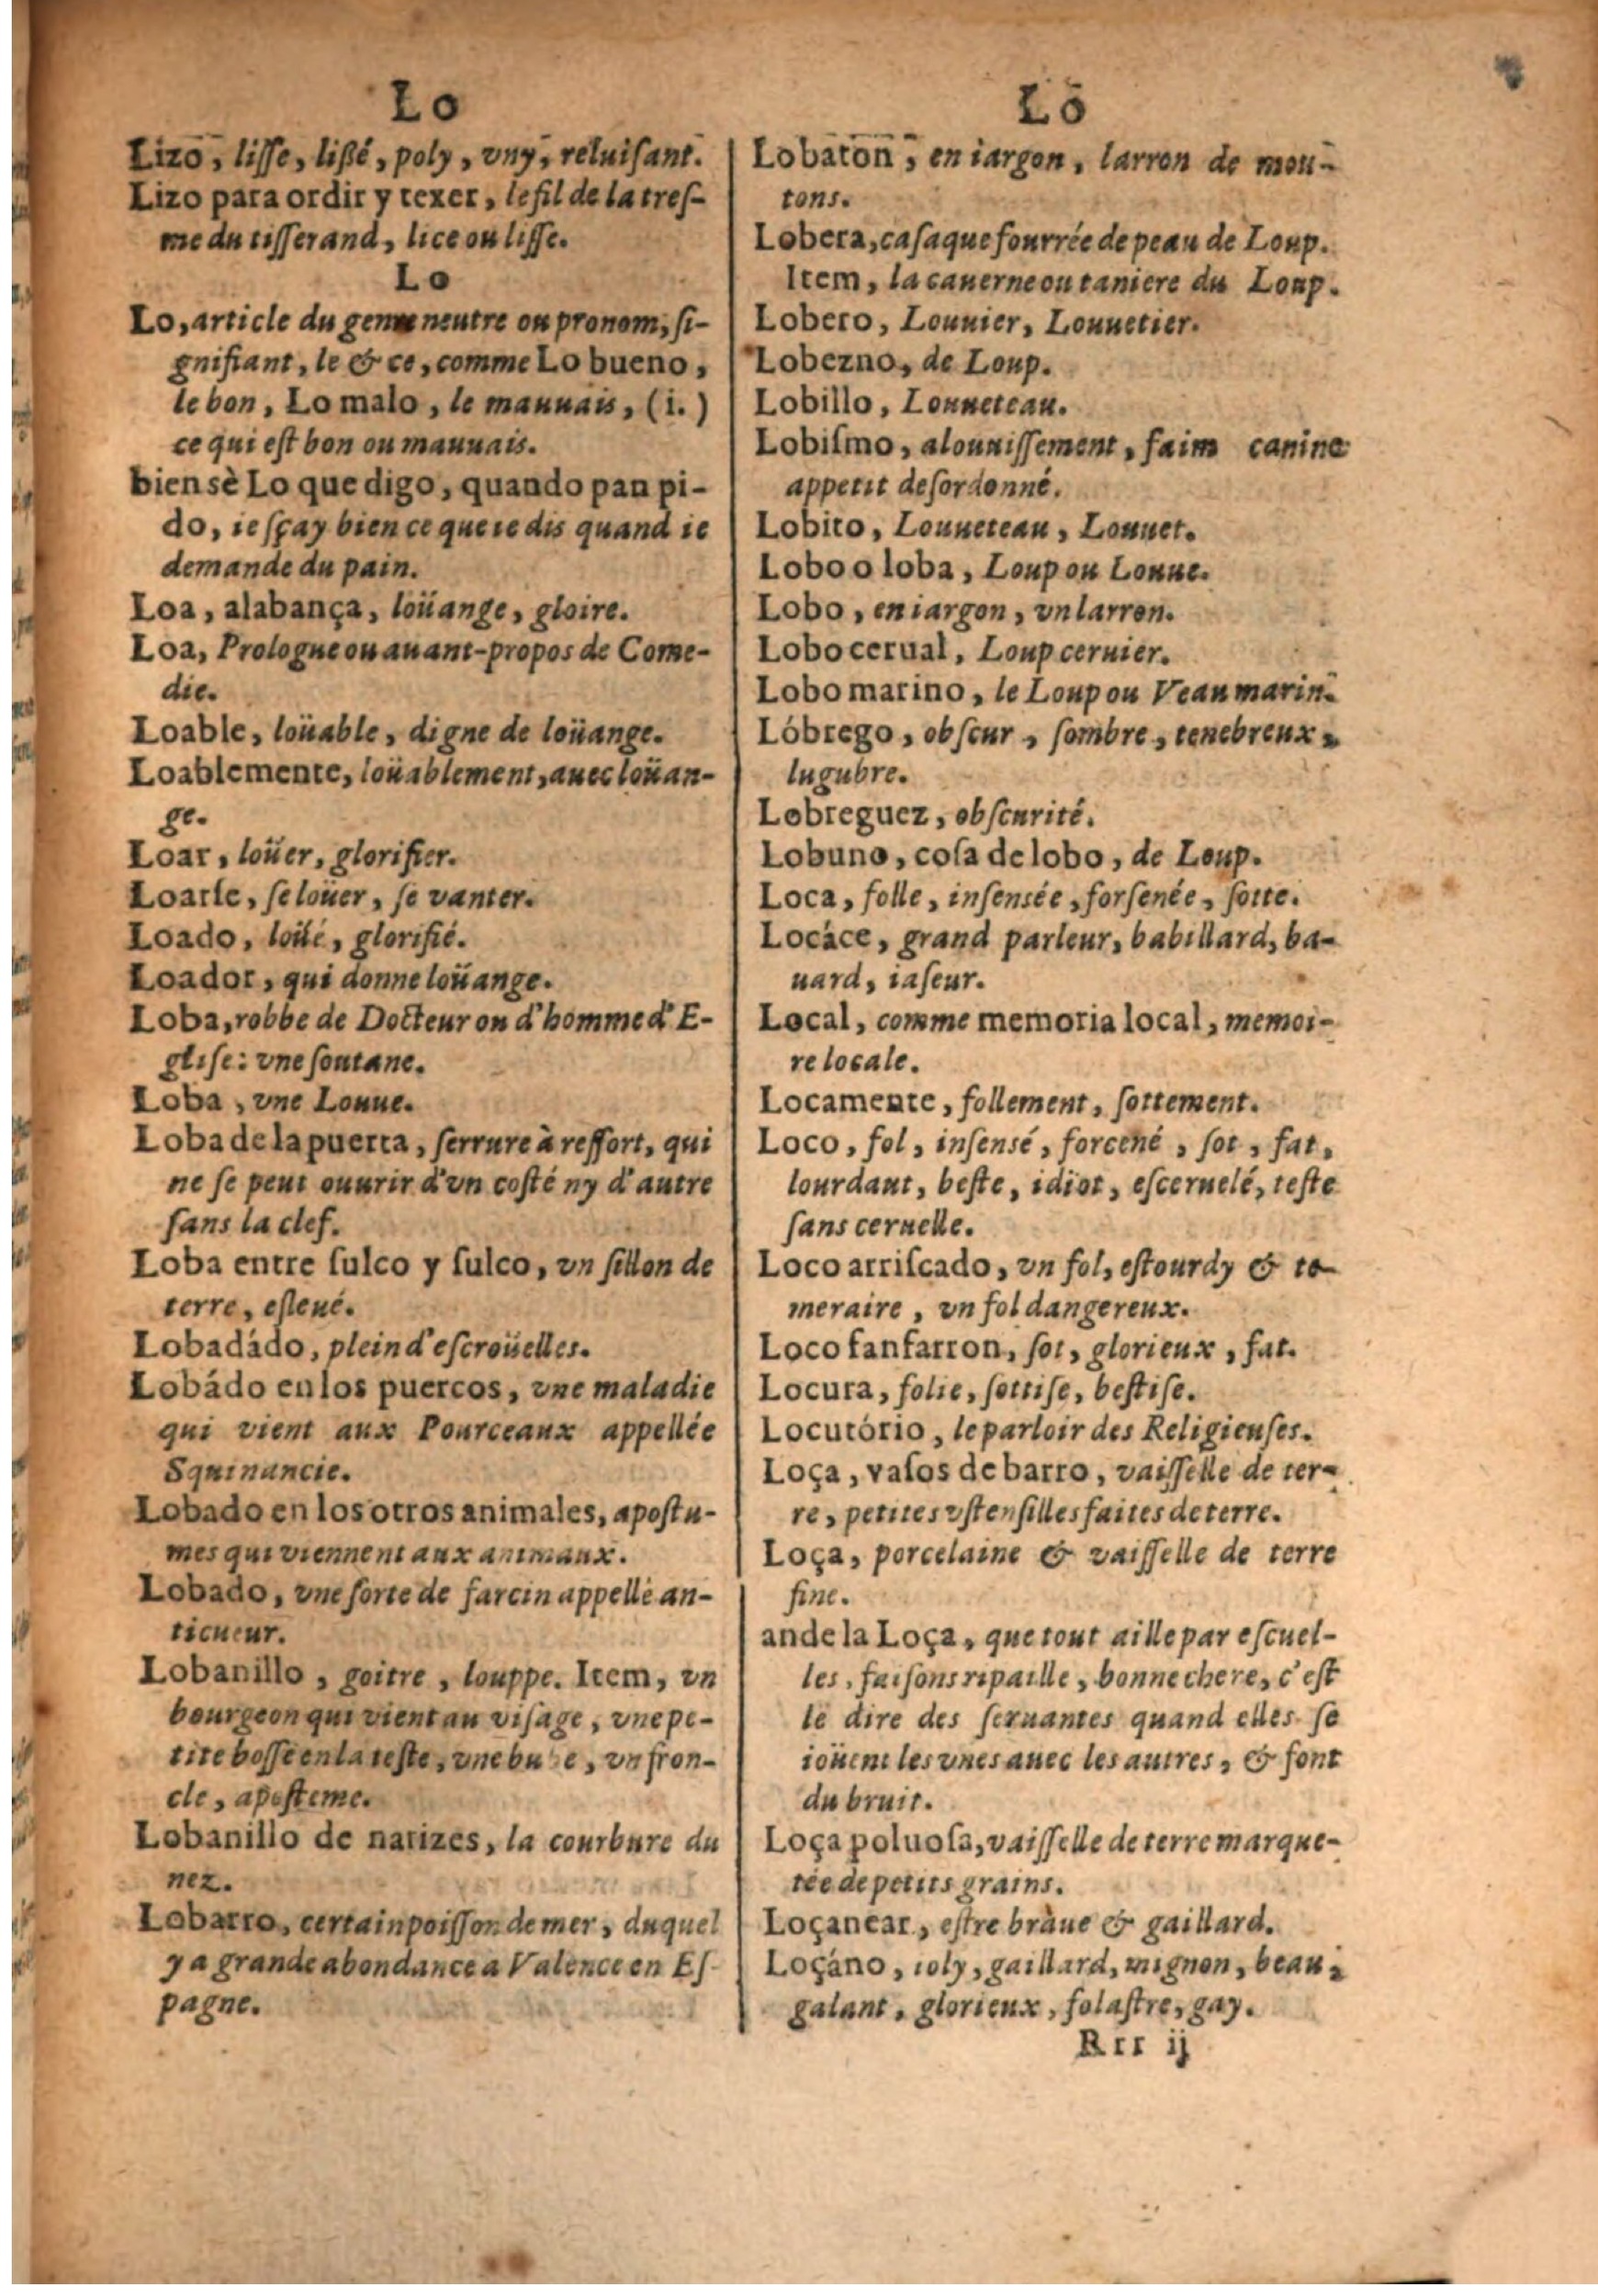 Lo
Lizo, liſſe, liſſé, poly, vny, reluiſant.
Lizo para ordir y texer, le fil de la treſ-
me du tiſſerand, lice ou liſſe.
Lo
Lo, article du genre neutre ou pronom, ſi-
gnifiant, le & ce, comme Lo bueno,
le bon, Lo malo, le mauuais, (i.)
ce qui eſt bon ou mauuais.
bien sè Lo que digo, quando pan pi-
do, ie ſçay bien ce que ie dis quand ie
demande du pain.
Loa, alabança, loüange, gloire.
Loa, Prologue ou auant-propos de Come-
die.
Loable, loüable, digne de loüange.
Loablemente, loüablement, auec loüan-
ge.
Loar, loüer, glorifier.
Loarſe, ſe loüer, ſe vanter.
Loado, loüé, glorifié.
Loador, qui donne loüange.
Loba, robbe de Docteur ou d'homme d'E-
gliſe: vne ſoutane.
Loba, vne Louue.
Loba de la puerta, ſerrure à reſſort, qui
ne ſe peut ouurir d'vn coſté ny d'autre
ſans la clef.
Loba entre ſulco y ſulco, vn ſillon de
terre, eſleué.
Lobadádo, plein d'eſcroüelles.
Lobádo en los puercos, vne maladie
qui vient aux Pourceaux appellée
Squinancie.
Lobado en los otros animales, apoſtu-
mes qui viennent aux animaux.
Lobado, vne ſorte de farcin appellé an-
ticueur.
Lobanillo, goitre, louppe. Item, vn
bourgeon qui vient au viſage, vne pe-
tite boſſe en la teſte, vne bube, vn fron-
cle, apoſteme.
Lobanillo de narizes, la courbure du
nez.
Lobarro, certain poiſſon de mer, duquel
y a grande abondance à Valence en Eſ-
pagne.
Lo
Lobaton, en iargon, larron de mou-
tons.
Lobera, caſaque fourrée de peau de Loup.
Item, la cauerne ou taniere du Loup.
Lobero, Louuier, Louuetier.
Lobezno, de Loup.
Lobillo, Louueteau.
Lobiſmo, alouuiſſement, faim canine
appetit deſordonné.
Lobito, Louueteau, Louuet.
Lobo o loba, Loup ou Louue.
Lobo, en iargon, vn larron.
Lobo cerual, Loup ceruier.
Lobo marino, le Loup ou Veau marin.
Lóbrego, obſcur, ſombre, tenebreux,
lugubre.
Lobreguez, obſcurité.
Lobuno, coſa de lobo, de Loup.
Loca, folle, inſensée, forſenée, ſotte.
Locáce, grand parleur, babillard, ba-
uard, iaſeur.
Local, comme memoria local, memoi-
re locale.
Locamente, follement, ſottement.
Loco, fol, inſensé, forcené, ſot, fat,
lourdaut, beſte, idiot, eſceruelé, teſte
ſans ceruelle.
Loco arriſcado, vn fol, eſtourdy & te-
meraire, vn fol dangereux.
Loco fanfarron, ſot, glorieux, fat.
Locura, folie, ſottiſe, beſtiſe.
Locutório, le parloir des Religieuſes.
Loça, vaſos de barro, vaiſſelle de ter-
re, petites vſtenſilles faites de terre.
Loça, porcelaine & vaiſſelle de terre
fine.
ande la Loça, que tout aille par eſcuel-
les, faiſons ripaille, bonne chere, c'eſt
le dire des ſeruantes quand elles ſe
ioüent les vnes auec les autres, & font
du bruit.
Loça poluoſa, vaiſſelle de terre marque-
tée de petits grains.
Loçanear, eſtre braue & gaillard.
Loçáno, ioly, gaillard, mignon, beau,
galant, glorieux, folaſtre, gay.
Rrr ij